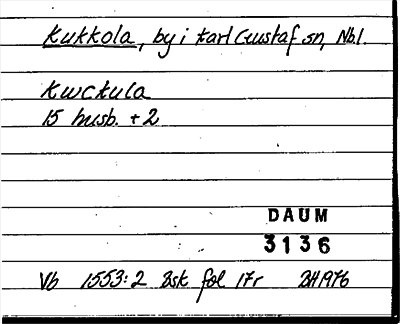 Kukkola, by i Karl Gustaf sn, Nbl.
Kwckula
15 husb. + 2
DAUM
3136
Vb 1553:2 Bsk fol 17r BH 1976